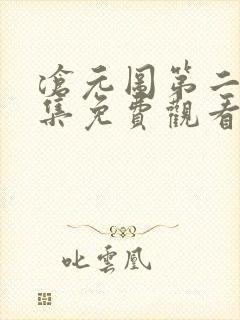 滄元圖第二
集免費觀看
叱雲凰